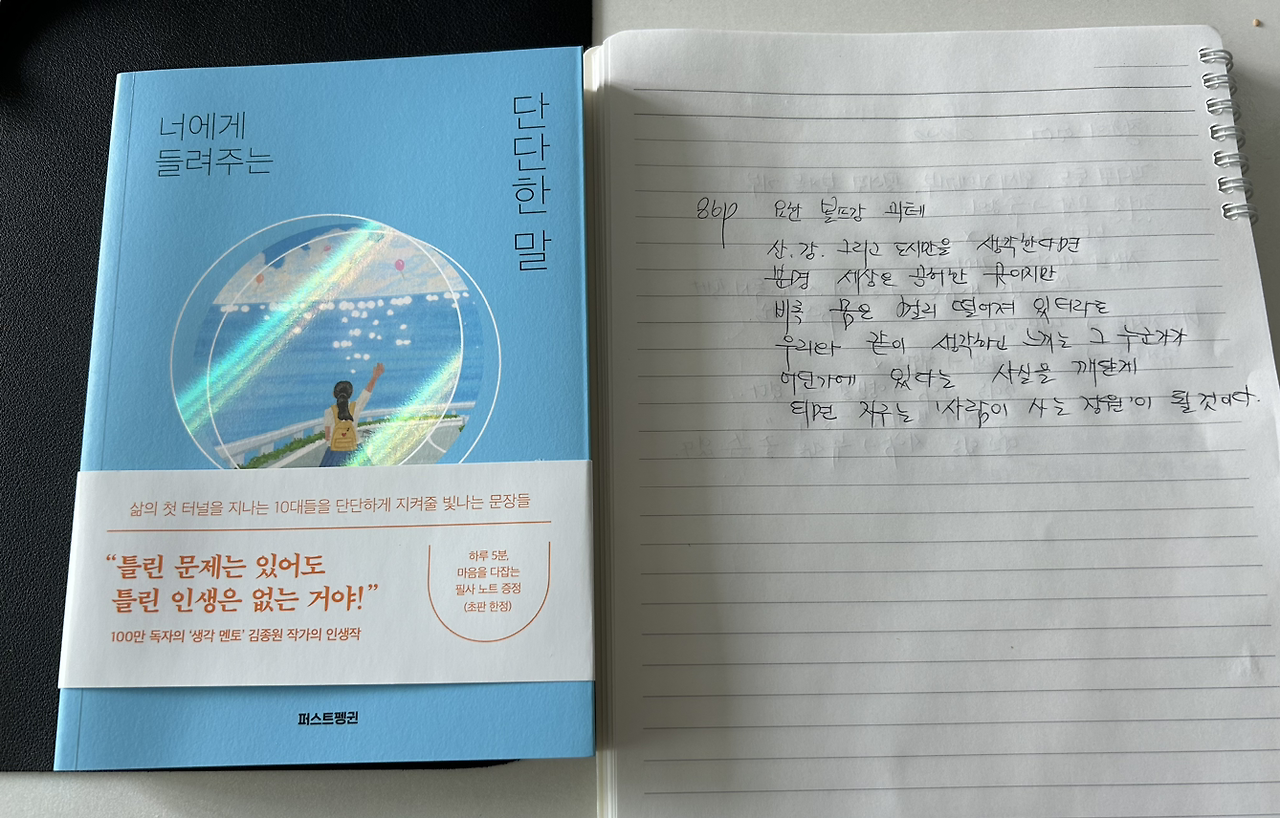 너에게
들려주는
단단한 말
삶의 첫 터널을 지나는 10대들을 단단하게 지켜줄 빛나는 문장들
“틀린 문제는 있어도
틀린 인생은 없는 거야!”
100만 독자의 ‘생각 멘토’ 김종원 작가의 인생작
하루 5분,
마음을 다잡는
필사 노트 증정
(초판 한정)
퍼스트펭귄
86p 요한 볼프강 괴테
산, 강, 그리고 도시만을 생각한다면
분명 세상은 공허한 곳이지만
비록 몸은 멀리 떨어져 있더라도
우리와 같이 생각하고 느끼는 그 누군가가
어딘가에 있다는 사실을 깨닫게
되면 지구는 '사람이 사는 정원'이 될 것이다.